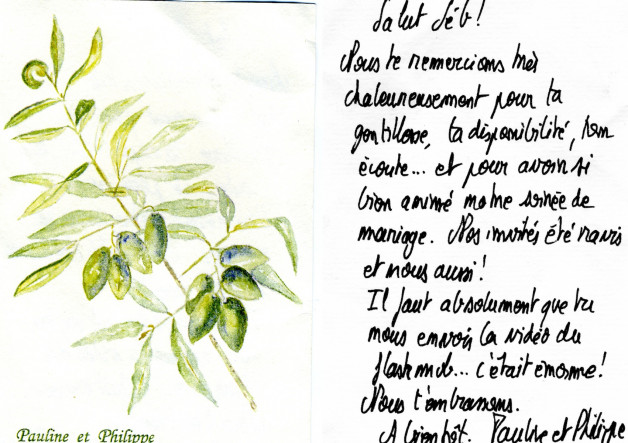 Pauline et Philippe
Salut Séb!
Nous te remercions très
chaleureusement pour ta
gentillesse, ta disponibilité, ton
écoute... et pour avoir si
bien animé notre soirée de
mariage. Nos invités été ravis
et nous aussi!
Il faut absolument que tu
nous envoi la vidéo du
flashmob... c'était énorme!
Nous t'embrassons.
A bientôt. Pauline et Philippe